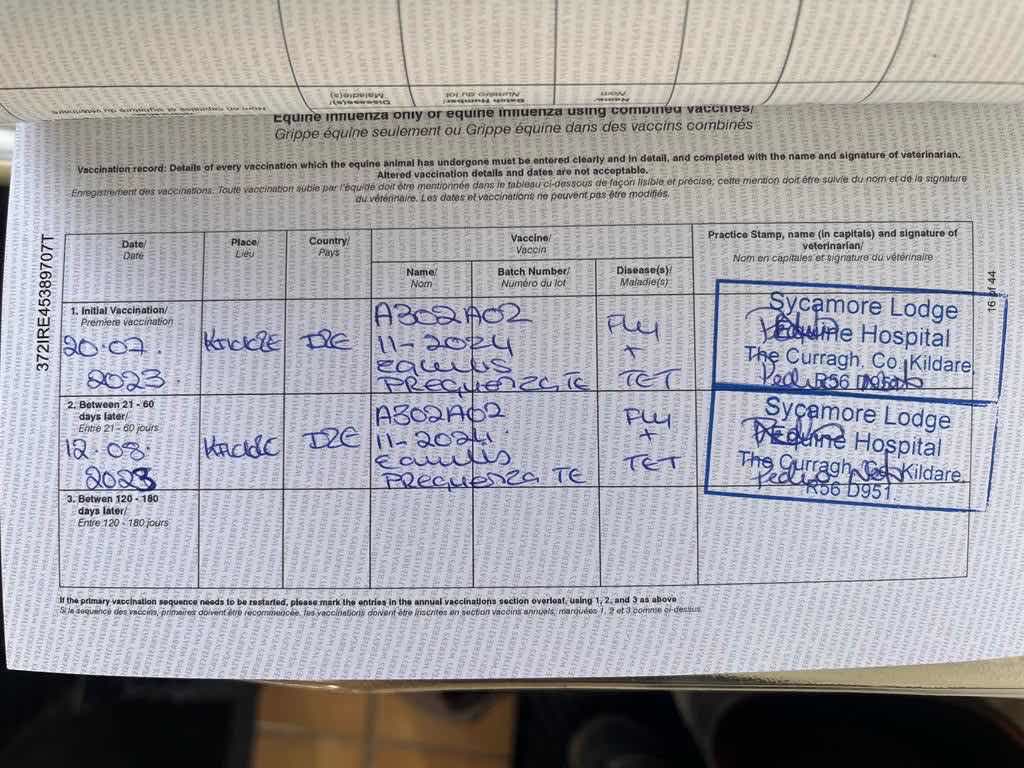 Equine influenza only or equine influenza using combined vaccines/
Grippe équine seulement ou Grippe équine dans des vaccins combinés
Vaccination record: Details of every vaccination which the equine animal has undergone must be entered clearly and in detail, and completed with the name and signature of veterinarian.
Altered vaccination details and dates are not acceptable.
Enregistrement des vaccinations. Toute vaccination subie par l'équidé doit être mentionnée dans le tableau ci-dessous de façon lisible et précise; cette mention doit être suivie du nom et de la signature
du vétérinaire. Les dates et vaccinations ne peuvent pas être modifiés.
372IRE45389707T
16 of 44
Date/
Date
Place/
Lieu
Country/
Pays
Vaccine/
Vaccin
Name/
Nom
Batch Number/
Numéro du lot
Disease(s)/
Maladie(s)
Practice Stamp, name (in capitals) and signature of
veterinarian/
Nom en capitales et signature du vétérinaire
1. Initial Vaccination/
Première vaccination
20.07.
2023.
A302A02
11-2024
equilis
PREQUENZA TE
FLU
+
TET
Sycamore Lodge
Equine Hospital
The Curragh, Co. Kildare,
R56 D951
2. Between 21 - 60
days later/
Entre 21 - 60 jours
12.08.
2023
A302A02
11-2024.
equilis
PREQUENZA TE
FLU
+
TET
Sycamore Lodge
Equine Hospital
The Curragh, Co. Kildare,
R56 D951.
3. Betwen 120 - 180
days later/
Entre 120 - 180 jours
If the primary vaccination sequence needs to be restarted, please mark the entries in the annual vaccinations section overleaf, using 1, 2, and 3 as above
Si la sequence des vaccins, primaires doivent être recommencée, les vaccinations doivent être inscrites en section vaccins annuels, marquées 1, 2 et 3 comme ci-dessus